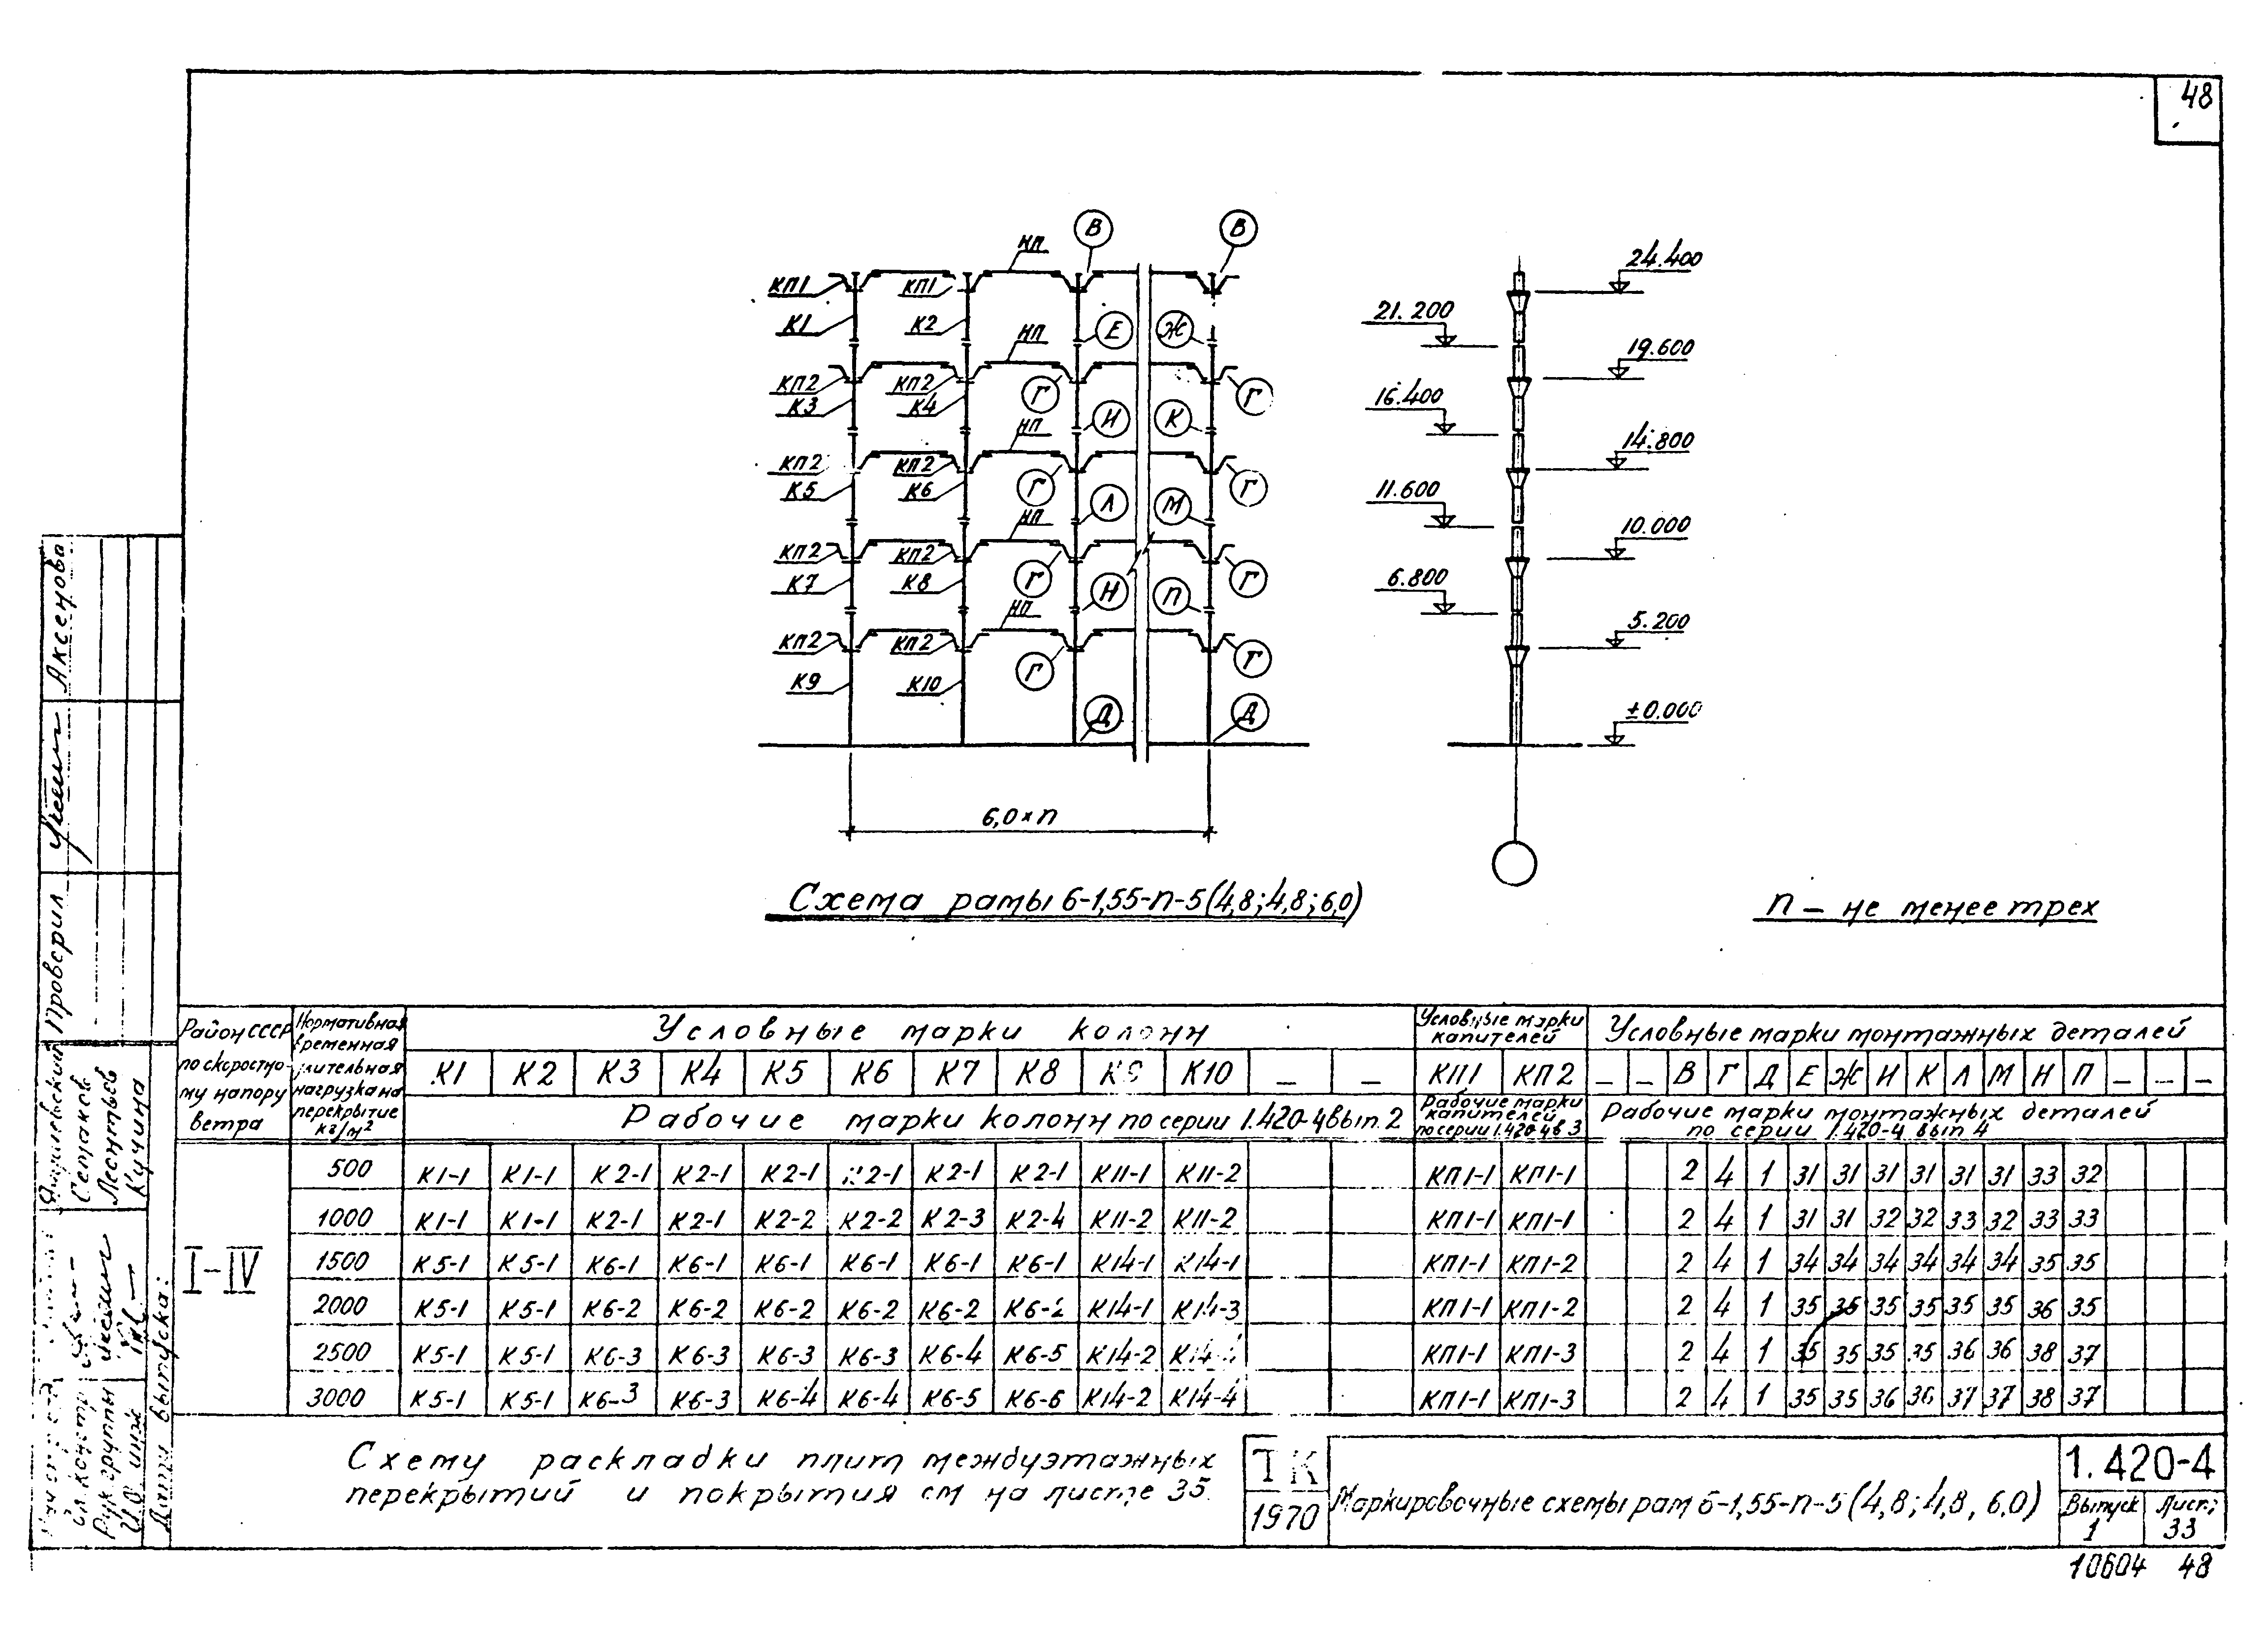 48
В В
НП
КП1 КП1
К1 К2 НП Е Ж
КП2 КП2
К3 К4 Г Г
НП И К
КП2 КП2
К5 К6 Г Г
НП Л М
КП2 КП2
К7 К8 Г Г
НП Н П
КП2 КП2
К9 К10 Г Г
Д Д
6,0×п
24.400
21.200
19.600
16.400
14.800
11.600
10.000
6.800
5.200
±0.000
Схема рамы 6-1,55-п-5(4,8;4,8;6,0)
п – не менее трех
Район СССР по скоростному напору ветра
Нормативная временная длительная нагрузка на перекрытие кг/м²
Условные марки колонн
Условные марки капителей
Условные марки монтажных деталей
К1 К2 К3 К4 К5 К6 К7 К8 К9 К10 – – КП1 КП2 – – В Г Д Е Ж И К Л М Н П – – –
Рабочие марки колонн по серии 1.420-4 вып. 2
Рабочие марки капителей по серии 1.420-4 в 3
Рабочие марки монтажных деталей по серии 1.420-4 вып 4
I-IV
500 К1-1 К1-1 К2-1 К2-1 К2-1 К2-1 К2-1 К2-1 К11-1 К11-2 КП1-1 КП1-1 2 4 1 31 31 31 31 31 31 33 32
1000 К1-1 К1-1 К2-1 К2-1 К2-2 К2-2 К2-3 К2-4 К11-2 К11-2 КП1-1 КП1-1 2 4 1 31 31 32 32 33 32 33 33
1500 К5-1 К5-1 К6-1 К6-1 К6-1 К6-1 К6-1 К6-1 К14-1 К14-1 КП1-1 КП1-2 2 4 1 34 34 34 34 34 34 35 35
2000 К5-1 К5-1 К6-2 К6-2 К6-2 К6-2 К6-2 К6-2 К14-1 К14-3 КП1-1 КП1-2 2 4 1 35 35 35 35 35 35 36 35
2500 К5-1 К5-1 К6-3 К6-3 К6-3 К6-3 К6-4 К6-5 К14-2 КП1-1 КП1-3 2 4 1 35 35 35 35 36 36 38 37
3000 К5-1 К5-1 К6-3 К6-3 К6-4 К6-4 К6-5 К6-6 К14-2 К14-4 КП1-1 КП1-3 2 4 1 35 35 36 36 37 37 38 37
Схему раскладки плит междуэтажных
перекрытий и покрытия см на листе 35.
ТК
1970
Маркировочные схемы рам 6-1,55-п-5(4,8;4,8, 6,0)
1.420-4
Выпуск 1
Лист 33
10604 48
Проверил Аксенова
Сепаков
Леонтьев
Кучина
Гл. констр
Рук. группы
И.О. инж
Дата выпуска: